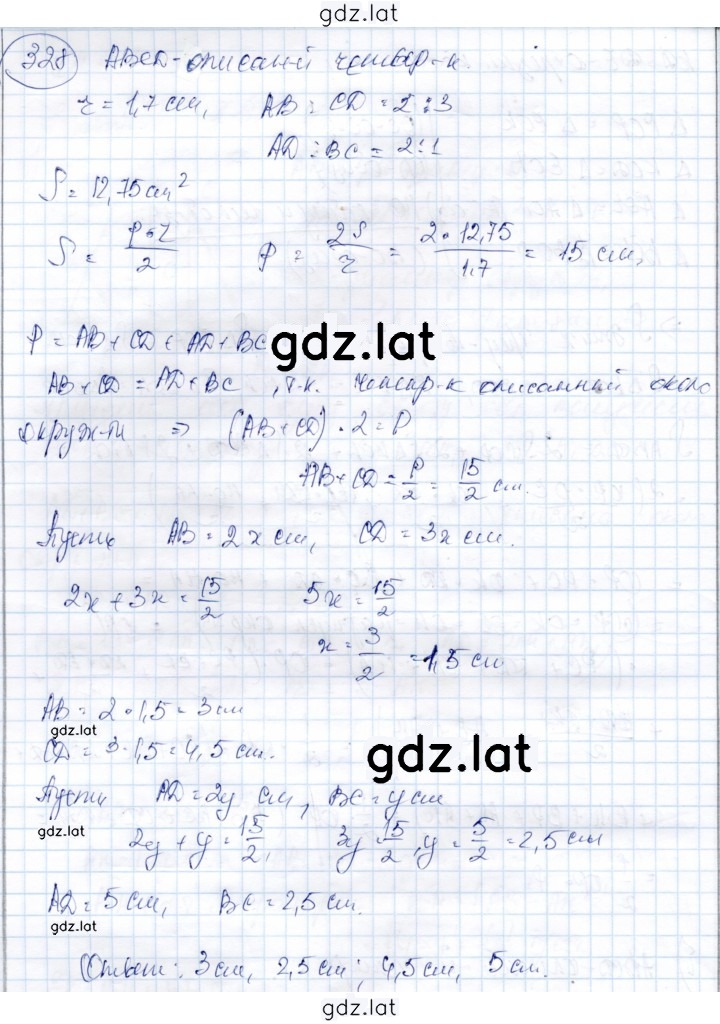 gdz.lat
328 ABCD - описаный четвер-к.
r = 1,7 см, AB : CD = 2 : 3
AD : BC = 2 : 1
S = 12,75 см²
S = P•r/2 P = 2S/r = 2•12,75/1,7 = 15 см,
P = AB + CD + AD + BC
gdz.lat
AB + CD = AD + BC, т.к. четвер-к описанный около
окруж-ти ⇒ (AB + CD) • 2 = P
AB + CD = P/2 = 15/2 см.
Пусть AB = 2x см, CD = 3x см.
2x + 3x = 15/2 5x = 15/2
x = 3/2 = 1,5 см
AB = 2 • 1,5 = 3 см
gdz.lat
CD = 3 • 1,5 = 4,5 см.
gdz.lat
Пусть AD = 2y см, BC = y см
gdz.lat
2y + y = 15/2, 3y = 15/2, y = 5/2 = 2,5 см
AD = 5 см, BC = 2,5 см.
gdz.lat
Ответ: 3 см, 2,5 см, 4,5 см, 5 см.
gdz.lat